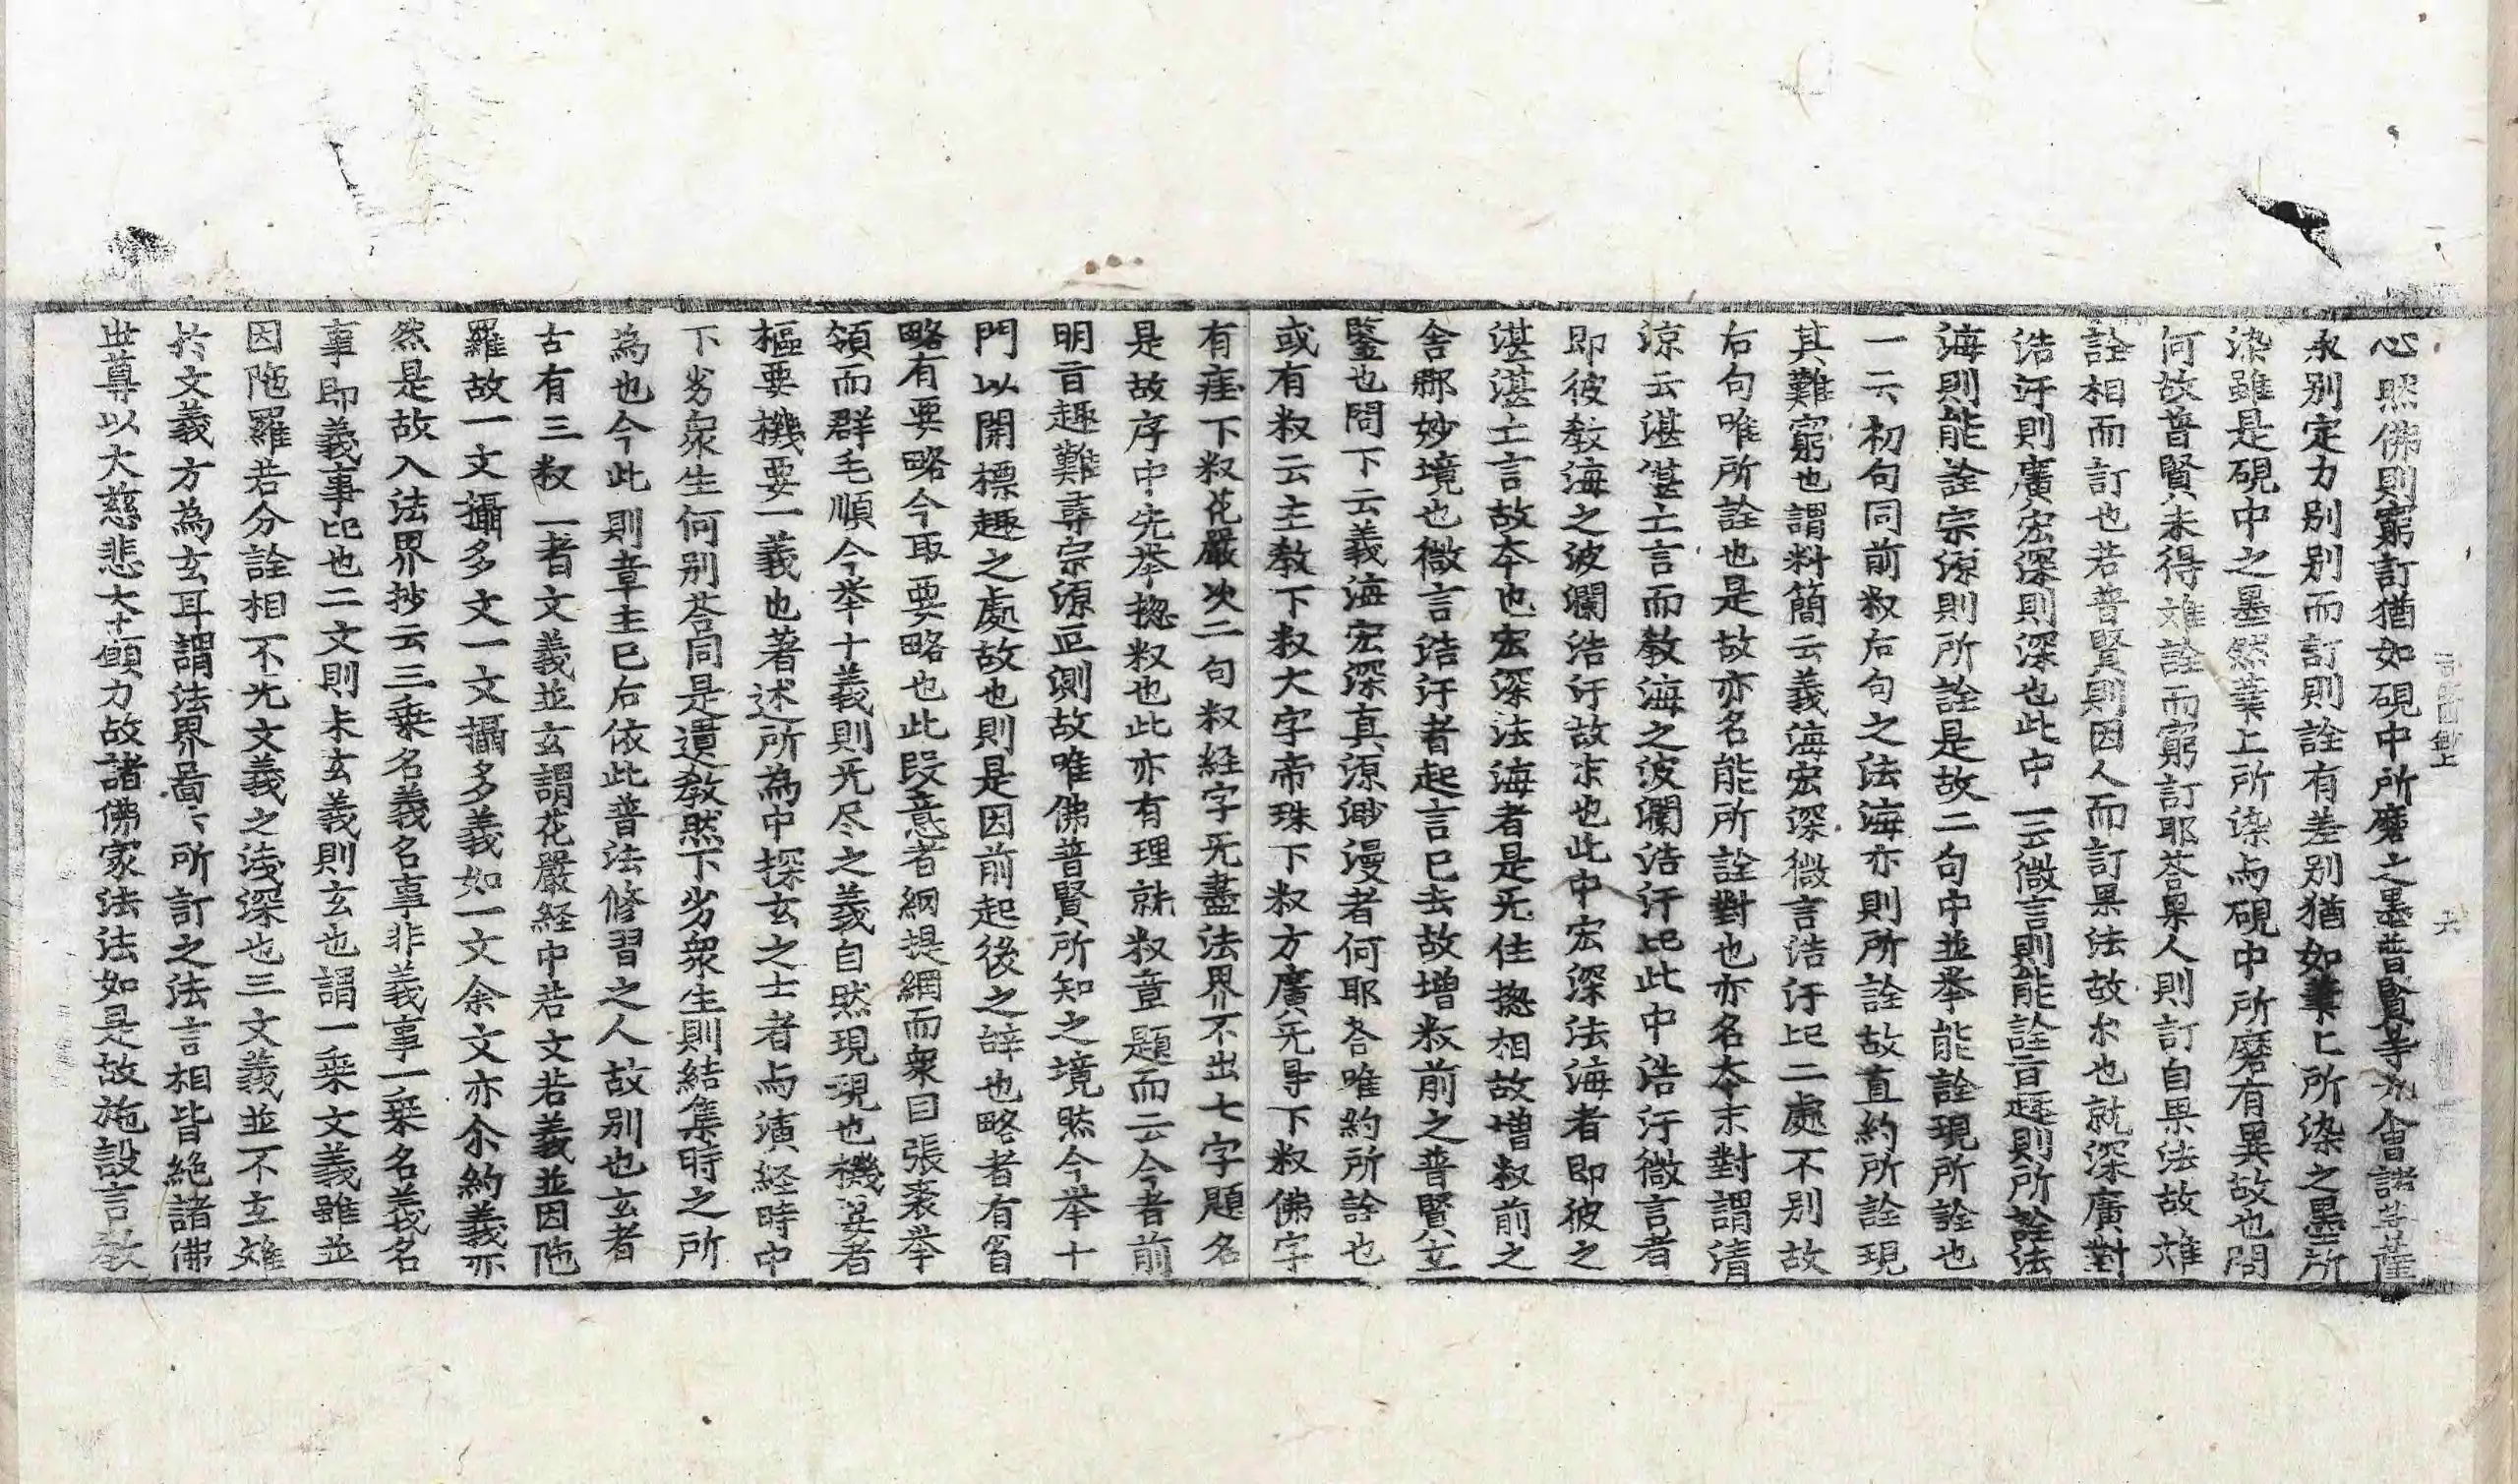 心照佛則窮訂猶如硯中所磨之墨普賢等九會諸菩薩
永別定力別別而訂則詮有差別猶如筆上所染之墨所
染雖是硯中之墨然葉上所染与硯中所磨有異故也問
何故普賢未得难詮而窮訂耶荅果人則訂自果法故难
詮相而訂也若普賢則因人而訂果法故尒也就深廣對
浩汗則廣宏深則深也此中一云微言則能詮旨趣則所詮法
海則能詮宗源則所詮是故二句中並举能詮現所詮也
一云初句同前叙后句之法海亦則所詮故直約所詮現
其難窮也謂料簡云義海宏深微言浩汗比二處不別故
右句唯所詮也是故亦名能所詮對也亦名本末對謂清
凉云湛湛土言而教海之波瀾浩汗比此中浩汗微言者
即彼教海之波瀾浩汗故末也此中宏深法海者即彼之
湛湛土言故本也宏深法海者是无住揔相故增叙前之
舍那妙境也微言浩汗者起言已去故增叙前之普賢玄
鑒也問下云義海宏深真源渺漫者何耶荅唯約所詮也
或有叙云主教下叙大字帝珠下叙方廣先㝵下叙佛字
有在下叙花嚴次二句叙経字无盡法界不出七字題名
是故序中先举揔叙也此亦有理就叙章題而云今者前
明旨趣難尋宗源叵測故唯佛普賢所知之境然今举十
門以開標趣之處故也則是因前起後之辝也略者有旨
略有要略今取要略也此段意者綱提網而衆目張裘举
領而群毛順今举十義則无尽之義自然現現也機要者
樞要機要一義也著述所為中探玄之士者与演経時中
下劣衆生何別荅同是遺教然下劣衆生則結集時之所
為也今此則章主已后依此普法修習之人故別也玄者
古有三叙一者文義並玄謂花嚴経中若文若義並因陁
羅故一文攝多文一文攝多義如一文余文亦尒約義亦
然是故入法界抄云三乗名義名事非義事一乗名義名
事即義事比也二文則未玄義則玄也謂一乗文義雖並
因陁羅若分詮相不无文義之浅深也三文義並不玄难
扵文義方為玄耳謂法界啚云所訂之法言相皆絶諸佛
世尊以大慈悲大願力故諸佛家法法如是故施設言教